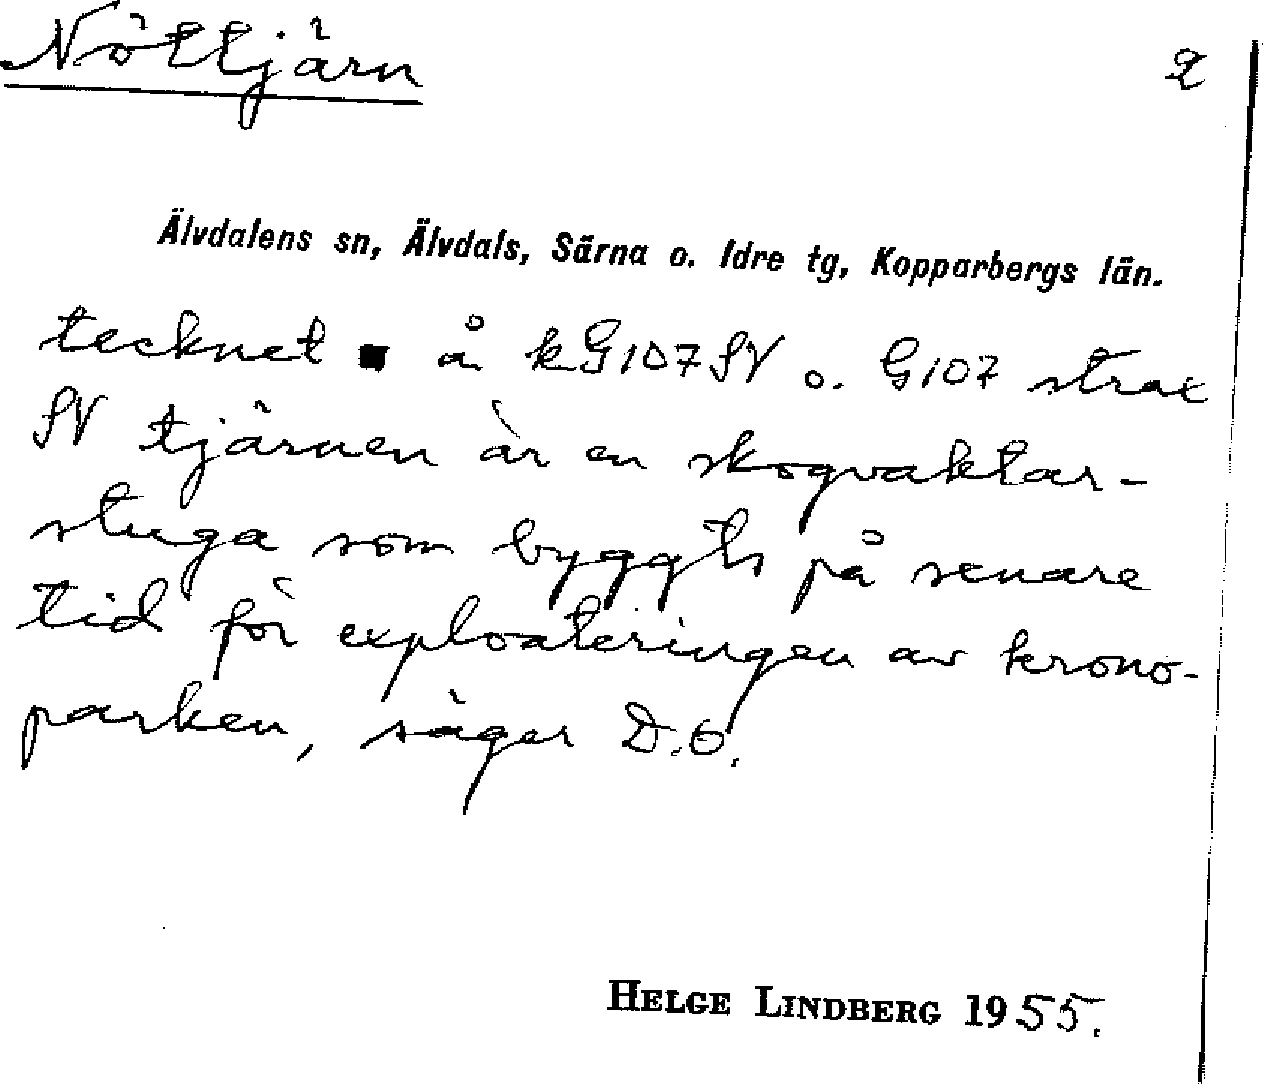 Nöttjärn
2
Älvdalens sn, Älvdals, Särna o. Idre tg, Kopparbergs län.
tecknet ■ å kG107SV o. G107 strax
SV tjärnen är en skogvaktar-
stuga som byggts på senare
tid för exploateringen av krono-
parken, säger D.O.
HELGE LINDBERG 1955.